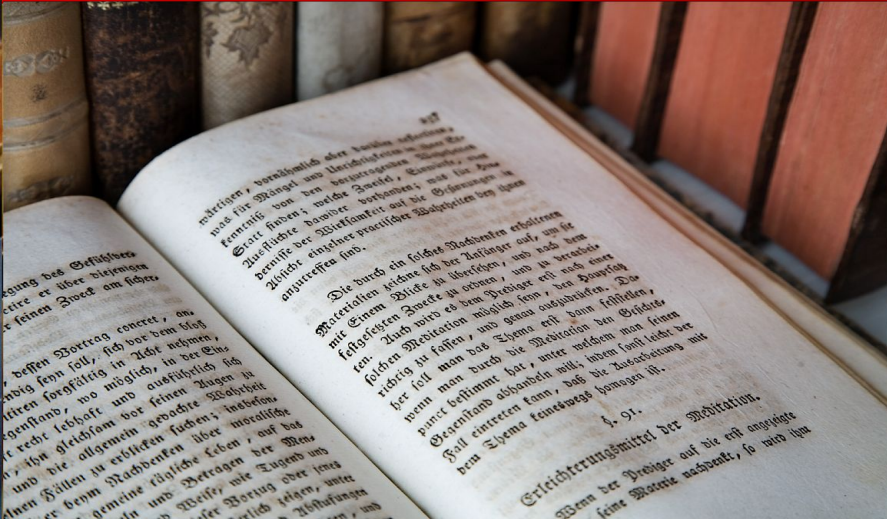 egung des Gefühlver-
ctire er über diejenigen
r seinen Zweck am sicher-
, dessen Vortrag concret, an-
ndig seyn soll, sich vor dem blos
tiren sorgfältig in Acht nehmen,
egenstand, wo möglich, in der Ein-
t recht lebhaft und ausführlich sich
ihn gleichsam vor seinen Augen zu
und die allgemein gedachte Wahrheit
elnen Fällen zu erblicken suchen; insbeson-
er beym Nachdenken über moralische
gemeine tägliche Leben, auf das
und Betragen der Men-
Weise, wie Tugend und
Vorzug oder jenes
zeigen, unter
Abstufungen
und
wärtigen, vornähmlich aber
was für Mängel und Unrichtigkeiten in ihrer Er-
kenntniß von den vorzutragenden Wahrheiten
Statt finden; welche Zweifel, Einwürfe, oder
Ausflüchte dawider vorhanden; was für Hin-
dernisse der Wirksamkeit auf die Gesinnungen in
Absicht einzelner practischer Wahrheiten bey ihnen
anzutreffen sind.
Die durch ein solches Nachdenken erhaltenen
Materialien zeichne sich der Anfänger auf, um sie
mit Einem Blicke zu übersehen, und nach dem
festgesetzten Zwecke zu ordnen, und zu verarbei-
ten. Auch wird es dem Prediger erst nach einer
solchen Meditation möglich seyn, den Hauptsatz
richtig zu fassen, und genau auszudrucken. Da-
her soll man das Thema erst dann feststellen,
wenn man durch die Meditation den Gesichts-
punct bestimmt hat, unter welchem man seinen
Gegenstand abhandeln will; indem sonst leicht der
Fall eintreten kann, daß die Ausarbeitung mit
dem Thema keineswegs homogen ist.
§. 91.
Erleichterungsmittel der Meditation.
Wenn der Prediger auf die erst angezeigte
seine Materie nachdenkt, so wird ihm